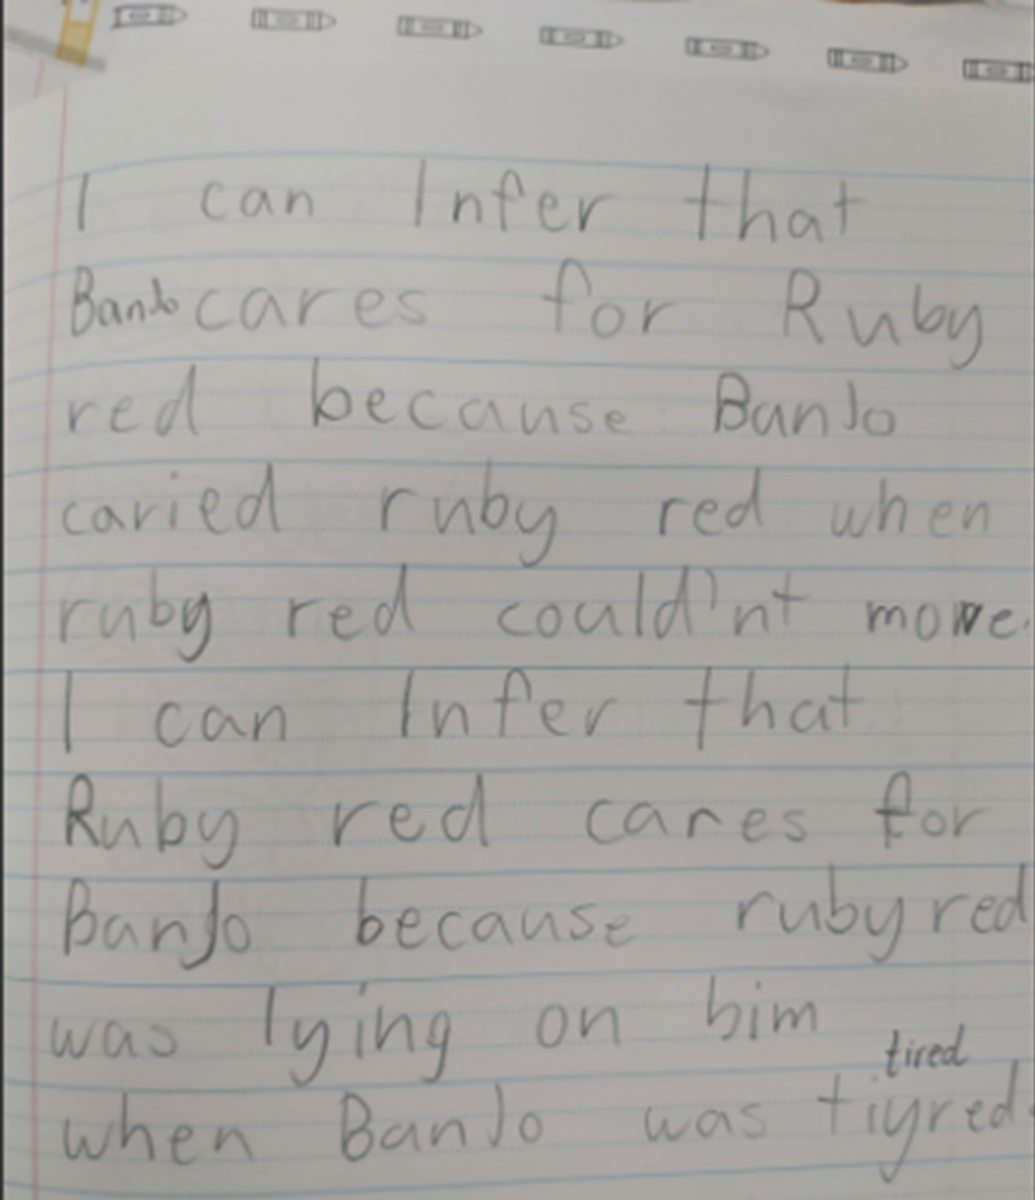 I can Infer that
BanJo cares for Ruby
red because BanJo
caried ruby red when
ruby red could'nt move.
I can Infer that
Ruby red cares for
BanJo because ruby red
was lying on him
tired
when BanJo was tiyred.